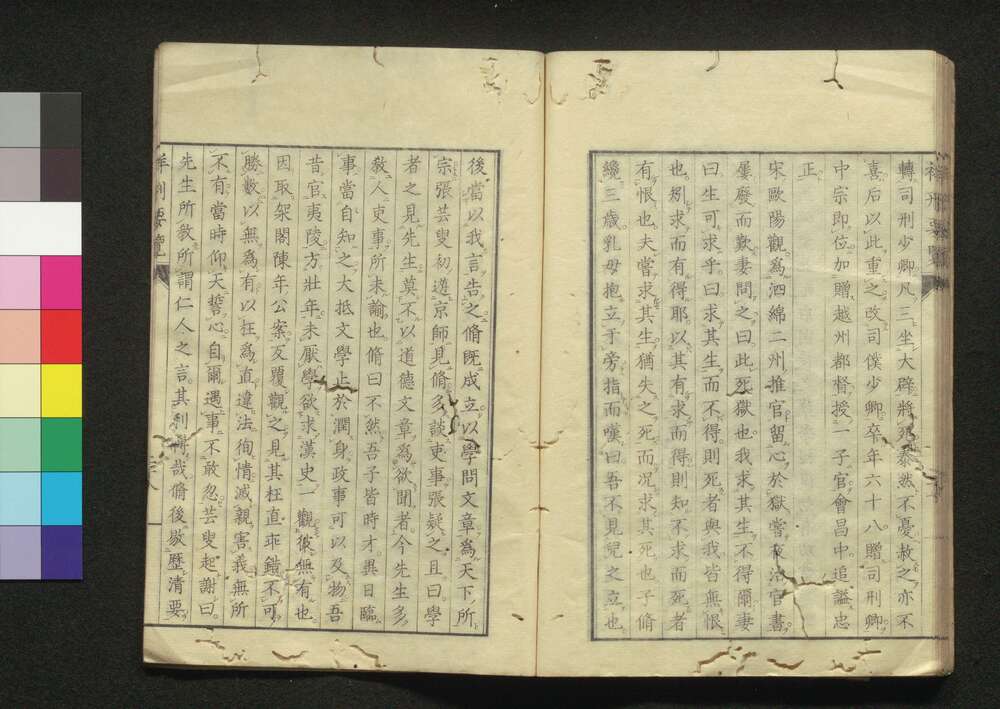 轉司刑少卿凡三坐大辟將死泰然不憂赦之亦不
喜后以此重之改司僕少卿卒年六十八贈司刑卿
中宗即位加贈越州都督授一子官會昌中追謚忠
正
宋歐陽觀爲泗綿二州推官留心於獄嘗夜治官書
屢廢而歎妻問之曰此死獄也我求其生不得爾妻
曰生可求乎曰求其生而不得則死者與我皆無恨
也矧求而有得耶以其有求而得則知不求而死者
有恨也夫嘗求其生猶失之死而况求其死也子脩
纔三歳乳母抱立于旁指而嘆曰吾不見兒之立也
後當以我言告之脩既成立以學問文章爲天下所
宗張芸叟初遊京師見脩多談吏事張疑之且曰學
者之見先生莫不以道德文章爲欲聞者今先生多
敎人吏事所未諭也脩曰不然吾子皆時才異日臨
事當自知之大抵文學止於潤身政事可以及物吾
昔官夷陵方壯年未厭學欲求漢史一觀彼無有也
因取架閣陳年公案反覆觀之見其枉直乖錯不可
勝數以無爲有以枉爲直違法徇情滅親害義無所
不有當時仰天誓心自爾遇事不敢忽芸叟起謝曰
先生所敎所謂仁人之言其利溥哉脩後敭歷清要
祥刑要覽